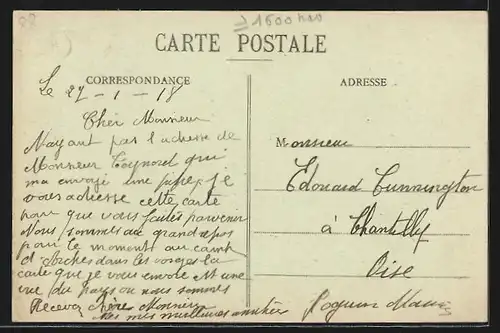 1600 hab
CARTE POSTALE
CORRESPONDANCE
ADRESSE
Le 27 - 1 - 18
Cher Monsieur
Nayant pas l'adresse de
Monsieur qui
ma envoyé une pipe, je
vous adresse cette carte
pour que vous faites parvenir
Nous sommes au grand repos
pour le moment au camp
d'Arches dans les vosges la
carte que je vous envoie et une
vue du pays ou nous sommes
Recevez chères Monsieur
mes meilleures amitiées
Monsieur
Edouard Cunnington
à Chantilly
Oise